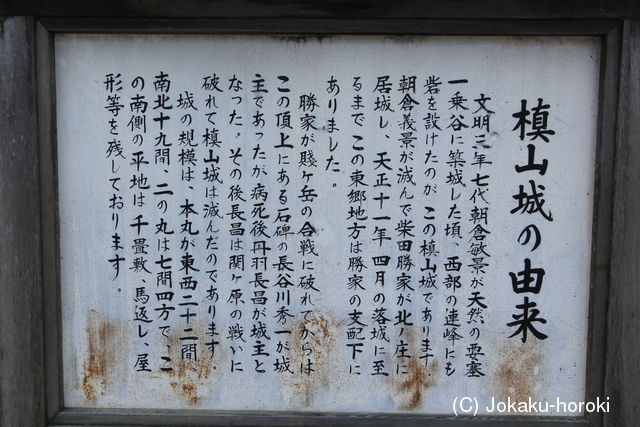 槙山城の由来
文明三年七代朝倉敏景が天然の要塞
一乗谷に築城した頃、西部の連峰にも
砦を設けたのが この槙山城であります
朝倉義景が滅んで柴田勝家が北ノ庄に
居城し、天正十一年四月の落城に至
るまで この東郷地方は勝家の支配下に
ありました。
勝家が賤ヶ岳の合戦に破れてからは
この頂上にある石碑の長谷川秀一が城
主であったが病死後丹羽長昌が城主と
なった。その後長昌は関ヶ原の戦いに
破れて槙山城は滅んだのであります。
城の規模は、本丸が東西二十二間、
南北十九間、二の丸は七間四方で、こ
の南側の平地は千畳敷、馬返し、屋
形等を残しております。
(C) Jokaku-horoki